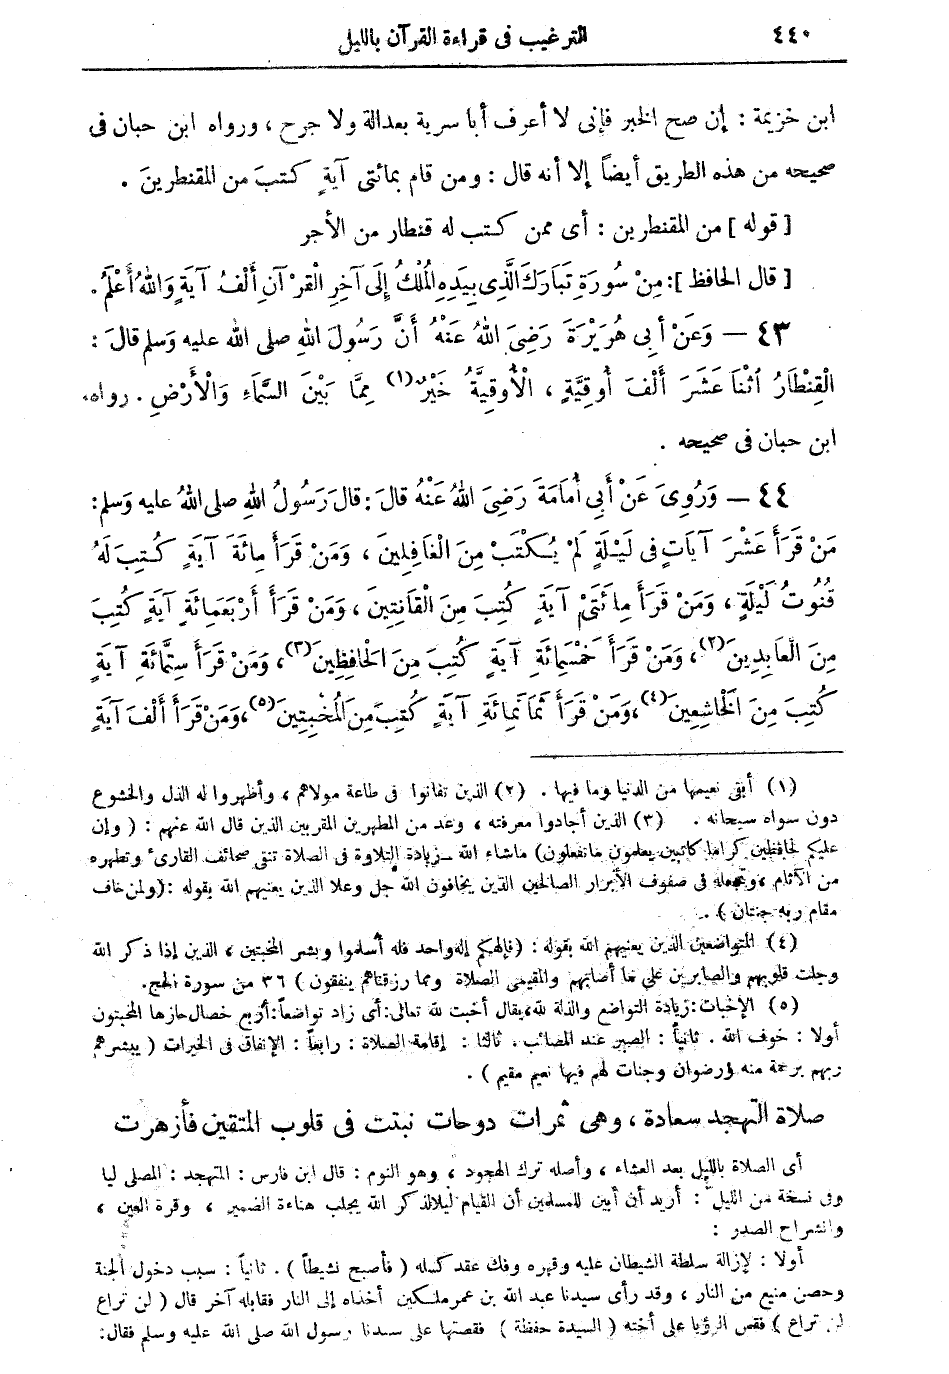 ٤٤٠
الترغيب فى قراءة القرآن بالليل
ابن خزيمة : إن صح الخبر فإنى لا أعرف أبا سرية بعدالة ولا جرح ، ورواه ابن حبان فى
صحيحه من هذه الطريق أيضاً إلا أنه قال : ومن قام بمائتى آيةٍ كتبَ من المقنطرينَ .
[ قوله ] من المقنطرين : أى ممن كتب له قنطار من الأجر
[ قال الحافظ ]: مِنْ سُورَةِ تَبَارَكَ الَّذِى بِيَدِهِ الْمُلْكُ إِلَى آخِرِ الْقُرْآنِ أَلْفُ آيَةٍ وَاللهُ أَعْلَمُ .
٤٣ — وَعَنْ أَبِى هُرَيْرَةَ رَضِىَ اللهُ عَنْهُ أَنَّ رَسُولَ اللهِ صلى الله عليه وَسلم قالَ :
الْقِنْطَارُ اثْنَا عَشَرَ أَلْفَ أُوقِيَّةٍ ، الْأُوقِيَّةُ خَيْرٌ(١) مِمَّا بَيْنَ السَّمَاءِ وَالْأَرْضِ . رواه
ابن حبان فى صحيحه .
٤٤ — وَرُوِىَ عَنْ أَبِى أُمَامَةَ رَضِىَ اللهُ عَنْهُ قالَ : قالَ رَسُولُ اللهِ صلى اللهُ عليه وَسلم :
مَنْ قَرَأَ عَشْرَ آيَاتٍ فِى لَيْلَةٍ لَمْ يُكْتَبْ مِنَ الْغَافِلِينَ ، وَمَنْ قَرَأَ مِائَةَ آيَةٍ كُتِبَ لَهُ
قُنُوتُ لَيْلَةٍ ، وَمَنْ قَرَأَ مِائَتَىْ آيَةٍ كُتِبَ مِنَ الْقَانِتِينَ ، وَمَنْ قَرَأَ أَرْبَعَمِائَةِ آيَةٍ كُتِبَ
مِنَ الْعَابِدِينَ(٢) ، وَمَنْ قَرَأَ خَمْسَمِائَةِ آيَةٍ كُتِبَ مِنَ الْحَافِظِينَ(٣) ، وَمَنْ قَرَأَ سِتَّمِائَةِ آيَةٍ
كُتِبَ مِنَ الْخَاشِعِينَ(٤) ، وَمَنْ قَرَأَ ثَمَانَمِائَةِ آيَةٍ كُتِبَ مِنَ الْمُخْبِتِينَ(٥) ، وَمَنْ قَرَأَ أَلْفَ آيَةٍ
(١) أبقى نعيمها من الدنيا وما فيها . (٢) الذين تفانوا فى طاعة مولاهم ، وأظهروا له الذل والخشوع
دون سواه سبحانه . (٣) الذين أجادوا معرفته ، وعد من المطهرين المقربين الذين قال الله عنهم : ( وإن
عليكم لحافظين كراما كاتبين يعلمون ما تفعلون ) ماشاء الله ـ زيادة التلاوة فى الصلاة تنقى صحائف القارئ وتطهره
من الآثام ، وتجعله فى صفوف الأبرار الصالحين الذين يخافون الله جل وعلا الذين يعنيهم الله بقوله : ( ولمن خاف
مقام ربه جنتان ) .
(٤) المتواضعين الذين يعنيهم الله بقوله : ( فإلهكم إله واحد فله أسلموا وبشر المخبتين ، الذين إذا ذكر الله
وجلت قلوبهم والصابرين على ما أصابهم والمقيمى الصلاة ومما رزقناهم ينفقون ) ٣٦ من سورة الحج.
(٥) الإخبات : زيادة التواضع والذلة لله ، يقال أخبت لله تعالى : أى زاد تواضعاً : أربع خصال حازها المخبتون
أولا : خوف الله . ثانياً : الصبر عند المصائب . ثالثا : إقامة الصلاة : رابعاً : الإنفاق فى الخيرات ( يبشرهم
ربهم برحمة منه ورضوان وجنات لهم فيها نعيم مقيم ) .
صلاة التهجد سعادة ، وهى ثمرات دوحات نبتت فى قلوب المتقين فأزهرت
أى الصلاة بالليل بعد العشاء ، وأصله ترك الهجود ، وهو النوم : قال ابن فارس : المتهجد : المصلى ليا
وفى نسخة من الليل : أريد أن أبين للمسلمين أن القيام ليلا لذكر الله يجلب هناءة الضمير ، وقرة العين ،
وانشراح الصدر :
أولا : لإزالة سلطة الشيطان عليه وقهره وفك عقد كسله ( فأصبح نشيطاً ) . ثانياً : سبب دخول الجنة
وحصن منيع من النار ، وقد رأى سيدنا عبد الله بن عمر ملكين أخذاه إلى النار فقابله آخر قال ( لن تراع
لن تراع ) فقص الرؤيا على أخته ( السيدة حفظة ) فقصتها على سيدنا رسول الله صلى الله عليه وسلم فقال :